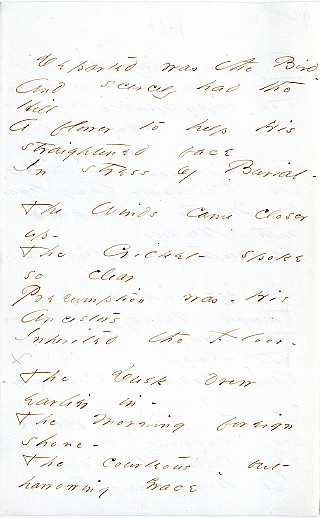 Departed was the Bird
And scarcely had the
Hill
A flower to help His
straightened face
In stress of Burial -
The Winds came closer
up -
The Cricket spoke
so clear
Presumption was - His
Ancestors
Inherited the Floor -
x
The Dusk drew
earlier in -
The Morning foreign
shone -
The courteous but
harrowing Grace